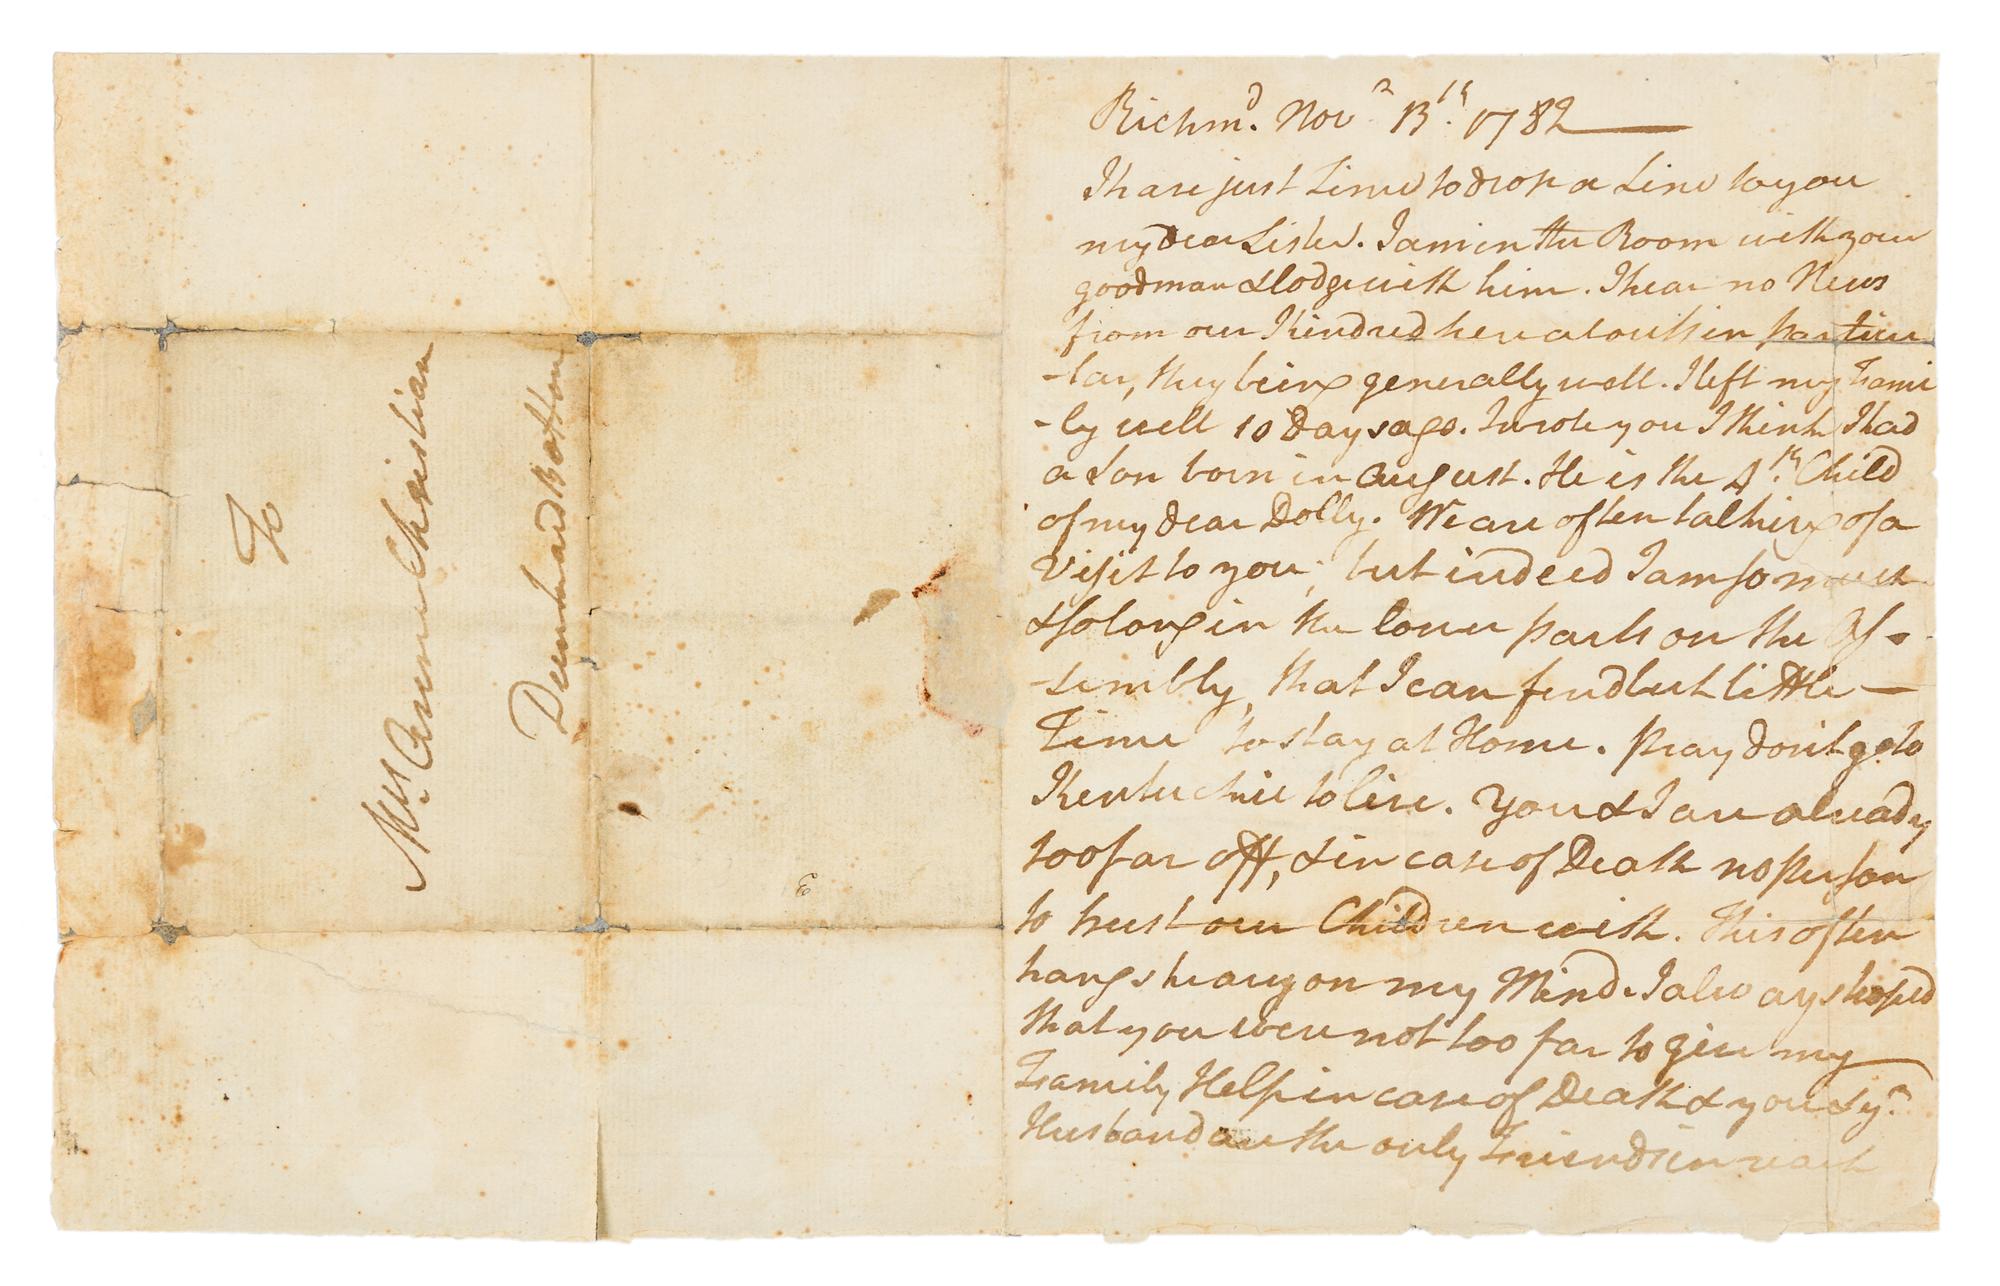 To
Mrs. Anne Christian
Dunkard Bottom
Richmd. Novr. 13th. 1782
I have just Time to drop a Line to you
my dear Sister. I am in the Room with your
goodman & lodge with him. I hear no News
from our Kindred hereabouts in particu
-lar, they being generally well. I left my Fami
-ly well 10 Days ago. I wrote you I think I had
a Son born in August. He is the 4th. Child
of my dear Dolly. We are often talking of a
Visit to you; but indeed I am so much
& so long in the lower parts on the As-
-sembly, that I can find but little
Time to stay at Home. Pray don't go to
Kentuckie to live. You & I are already
too far off, & in case of Death no person
to trust our Children with. This often
hangs heavy on my Mind. I always hoped
that you were not too far to give my
Family Help in case of Death & you & yr.
Husband are the only Friends in reach